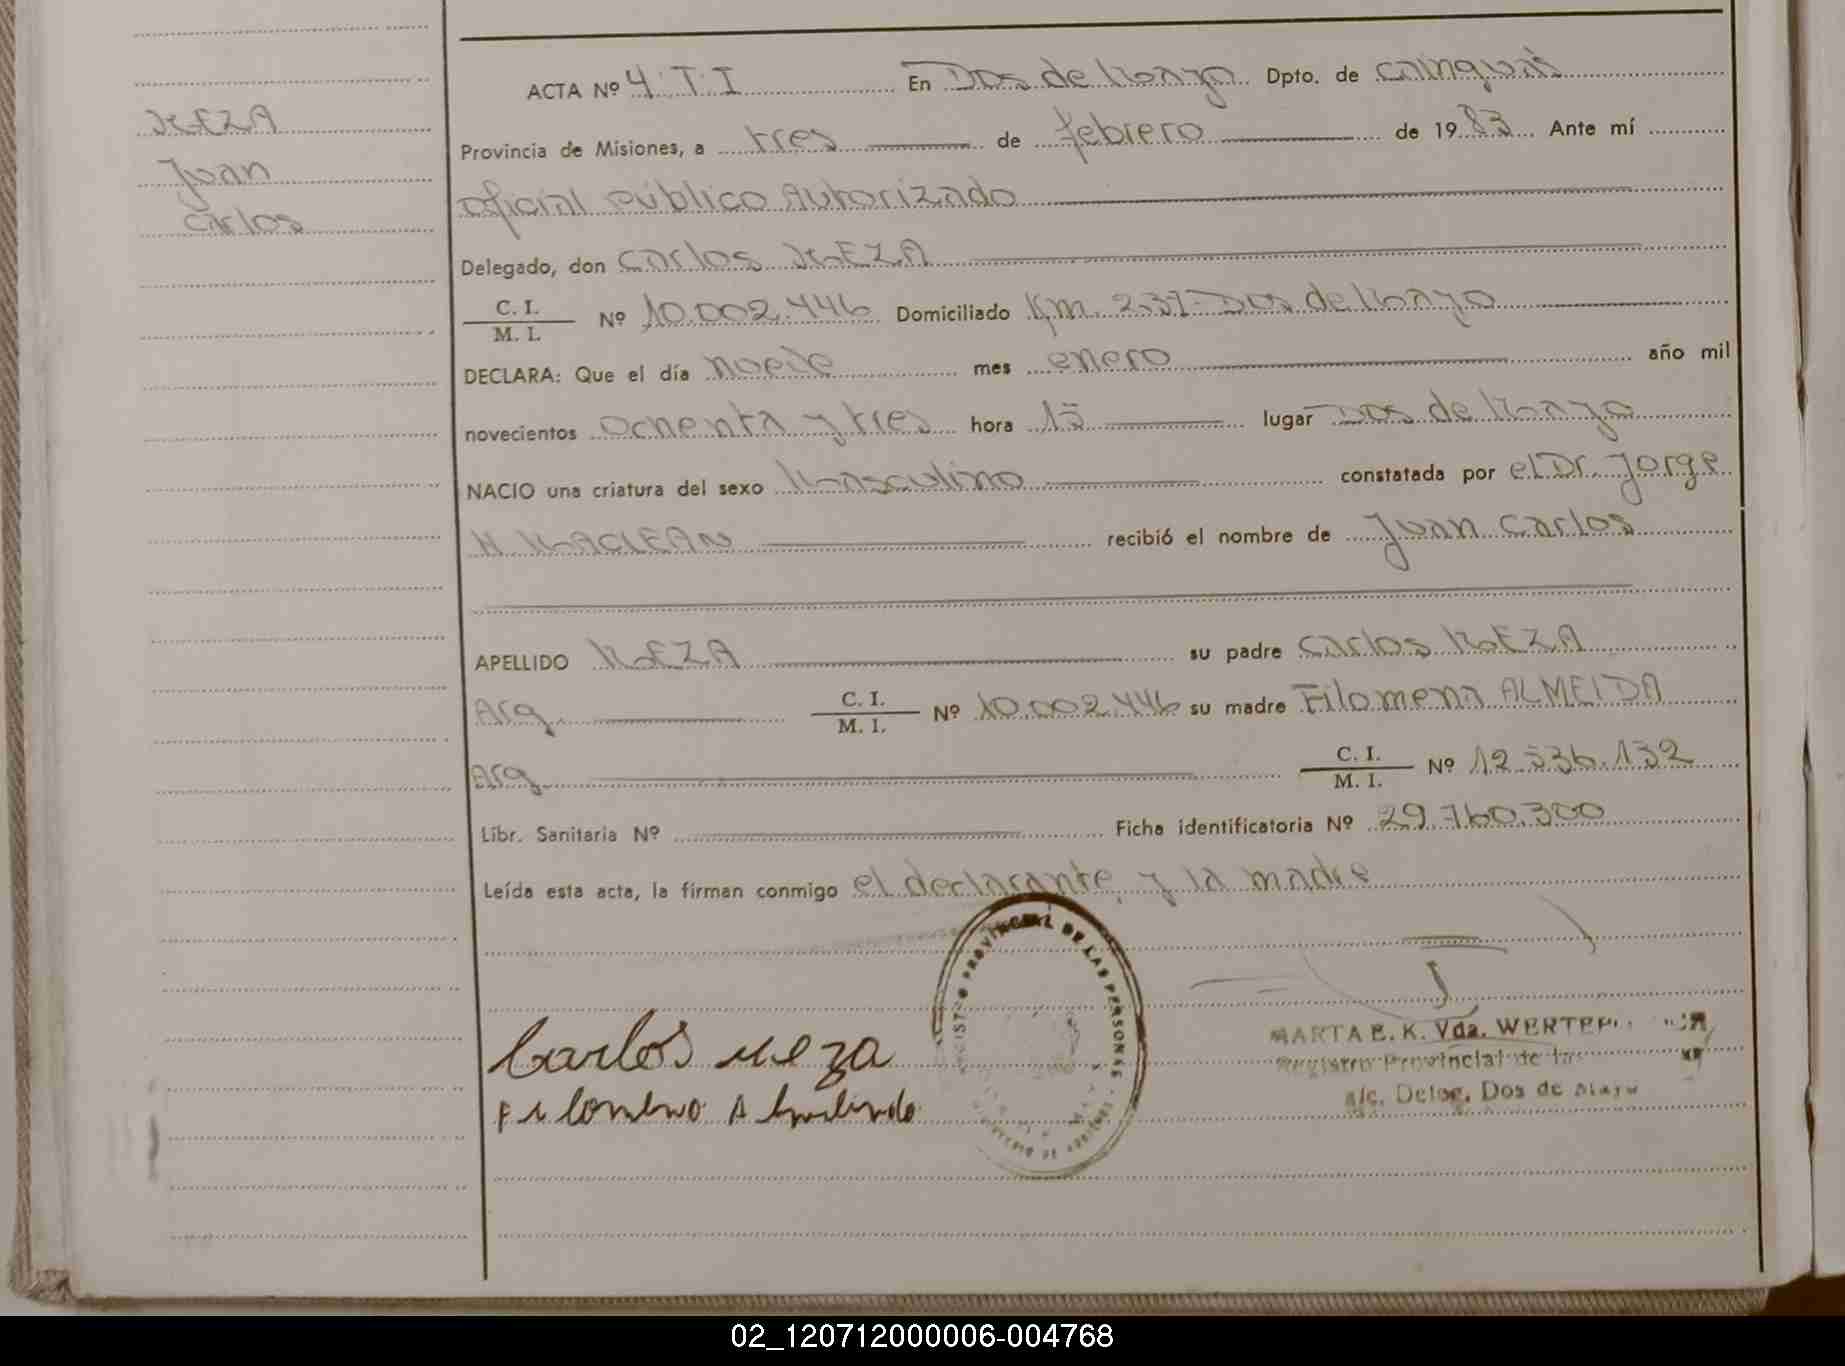 MEZA
Juan
Carlos
ACTA Nº 4. T. I En Dos de Mayo Dpto. de cainguás
Provincia de Misiones, a tres de febrero de 1983 Ante mí
oficial público Autorizado
Delegado, don Carlos MEZA
C. I.
M. I. Nº 10.002.446 Domiciliado Km. 237-Dos de Mayo
DECLARA: Que el día mes enero año mil
novecientos ochenta y tres hora 15 lugar Dos de Mayo
NACIO una criatura del sexo Masculino constatada por el Dr. Jorge
MACLEAN recibió el nombre de Juan Carlos
APELLIDO MEZA su padre Carlos MEZA
Arg. C. I.
M. I. Nº 10.002.446 su madre Filomena ALMEIDA
Arg. C. I.
M. I. Nº 12.536.132
Libr. Sanitaria Nº Ficha identificatoria Nº 29.760.300
Leída esta acta, la firman conmigo el declarante y la madre
PROVINCIAL DE LAS PERSONAS
Carlos Meza
MARTA E. K. Vda.
Registro Provincial de las
a/c. Deleg. Dos de Mayo
02_120712000006-004768